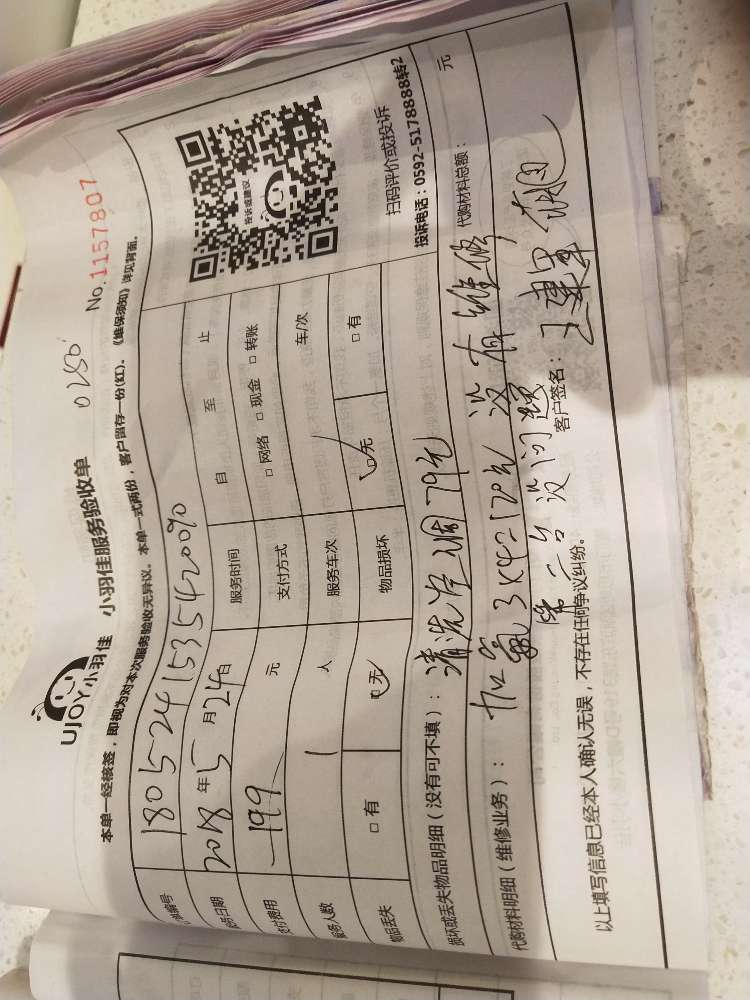 UJOY小羽佳 小羽佳服务验收单 0250 No.1157807
本单一经核签，即视为对本次服务验收无异议。本单一式两份，客户留存一份(红)。《维保须知》详见背面。
单编号 1805241535420090
服务日期 2018年5月24日 服务时间 自 至 止
支付费用 199 元 支付方式 □网络 □现金 □转账
服务人数 1 人 服务车次 车/次
物品丢失 □有 □无 物品损坏 □无 □有
投诉或建议
扫码评价或投诉
投诉电话：0592-5178888转2
损坏或丢失物品明细（没有可不填）： 清洗空调79元
代购材料明细（维修业务）： 代购材料总额： 元
加氟3×4=120元 没有维修
第二台没问题
以上填写信息已经本人确认无误，不存在任何争议纠纷。 客户签名：